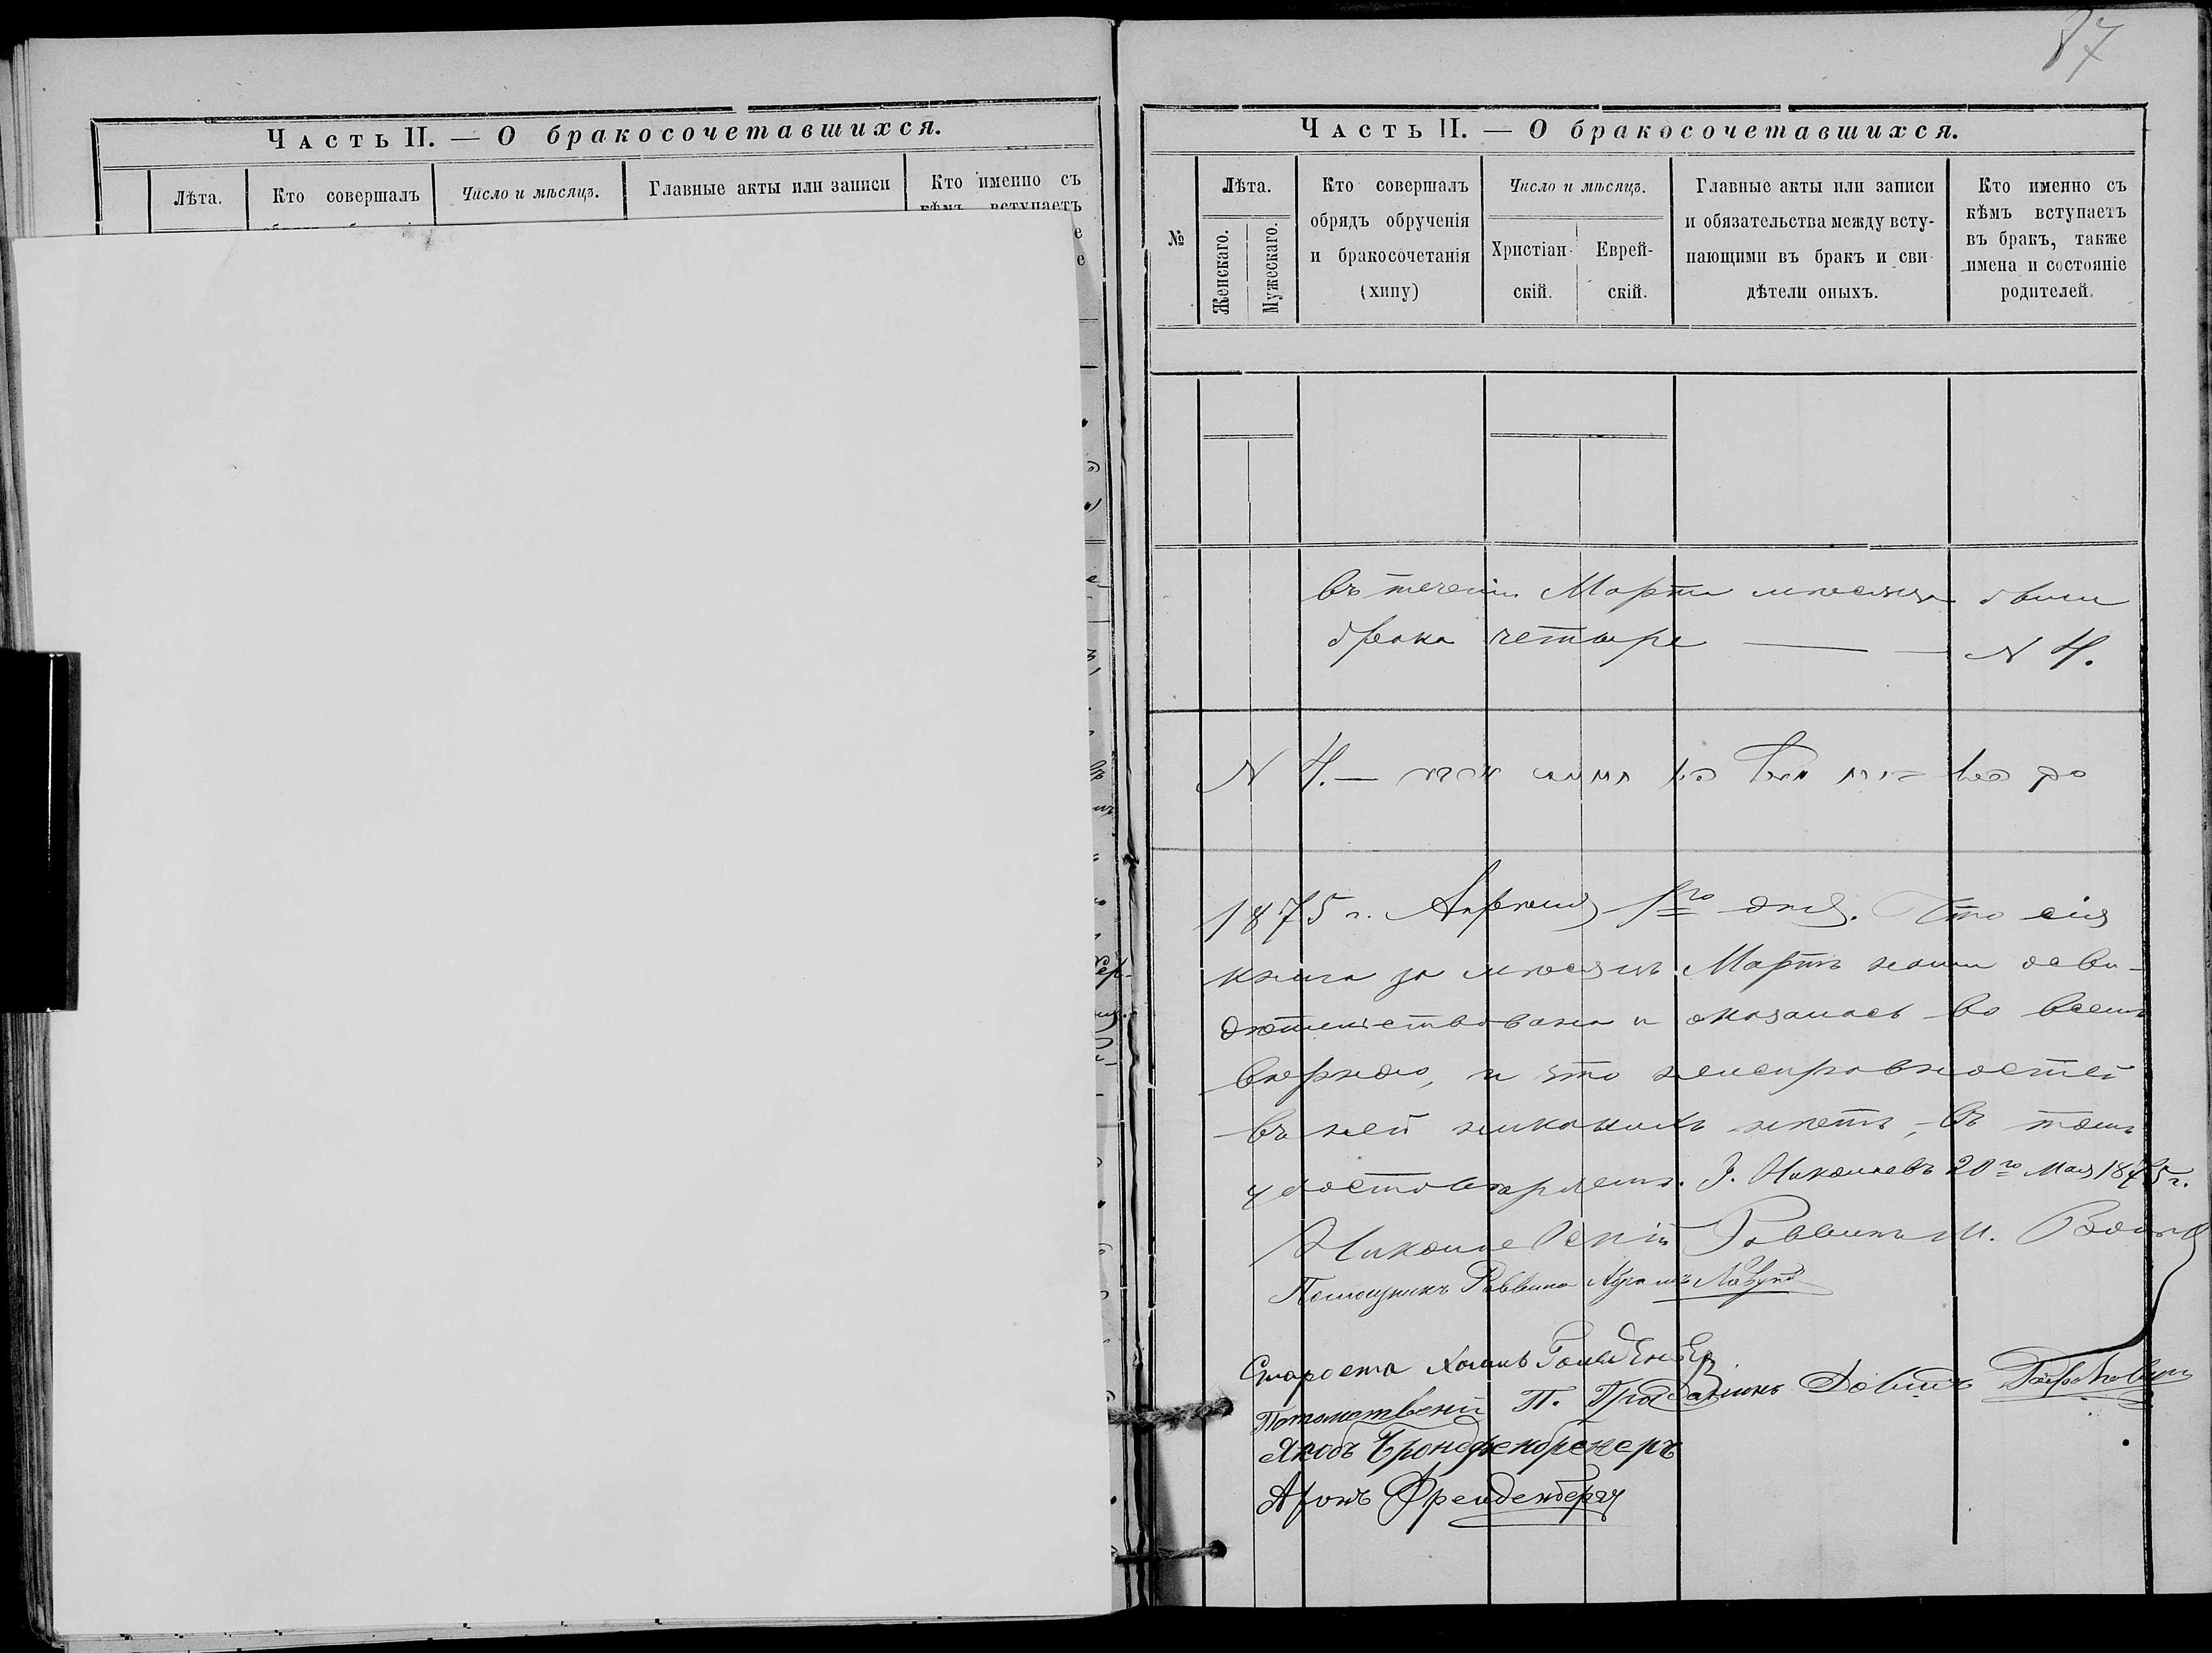 Часть II. — О бракосочетавшихся.
Лѣта.
Кто совершалъ
Число и мѣсяцъ.
Главные акты или записи
Кто именно съ
кѣмъ вступаетъ
87
Часть II. — О бракосочетавшихся.
№
Лѣта.
Женскаго.
Мужескаго.
Кто совершалъ
обрядъ обрученія
и бракосочетанія
(хипу)
Число и мѣсяцъ.
Христіан-
скій.
Еврей-
скій.
Главные акты или записи
и обязательства между всту-
пающими въ бракъ и сви-
дѣтели оныхъ.
Кто именно съ
кѣмъ вступаетъ
въ бракъ, также
имена и состояніе
родителей.
Въ теченіи Марта мѣсяца были
брака четыре — — N 4.
N 4. —
1875 г. Апрѣля 1го дня. Что сія
книга за мѣсяцъ Мартъ нами осви-
дѣтельствована и оказалась во всемъ
вѣрною, и что неисправностей
въ ней никакихъ нѣтъ, — въ томъ
удостовѣряемъ. Г. Николаевъ 20го Мая 1875 г.
Николаевскій Раввинъ М.
Помощникъ Раввина Абрамъ
Староста Хаимъ
Потомствений П. Гражданинъ Довидъ
Якобъ
Аронъ Фрейденбергъ